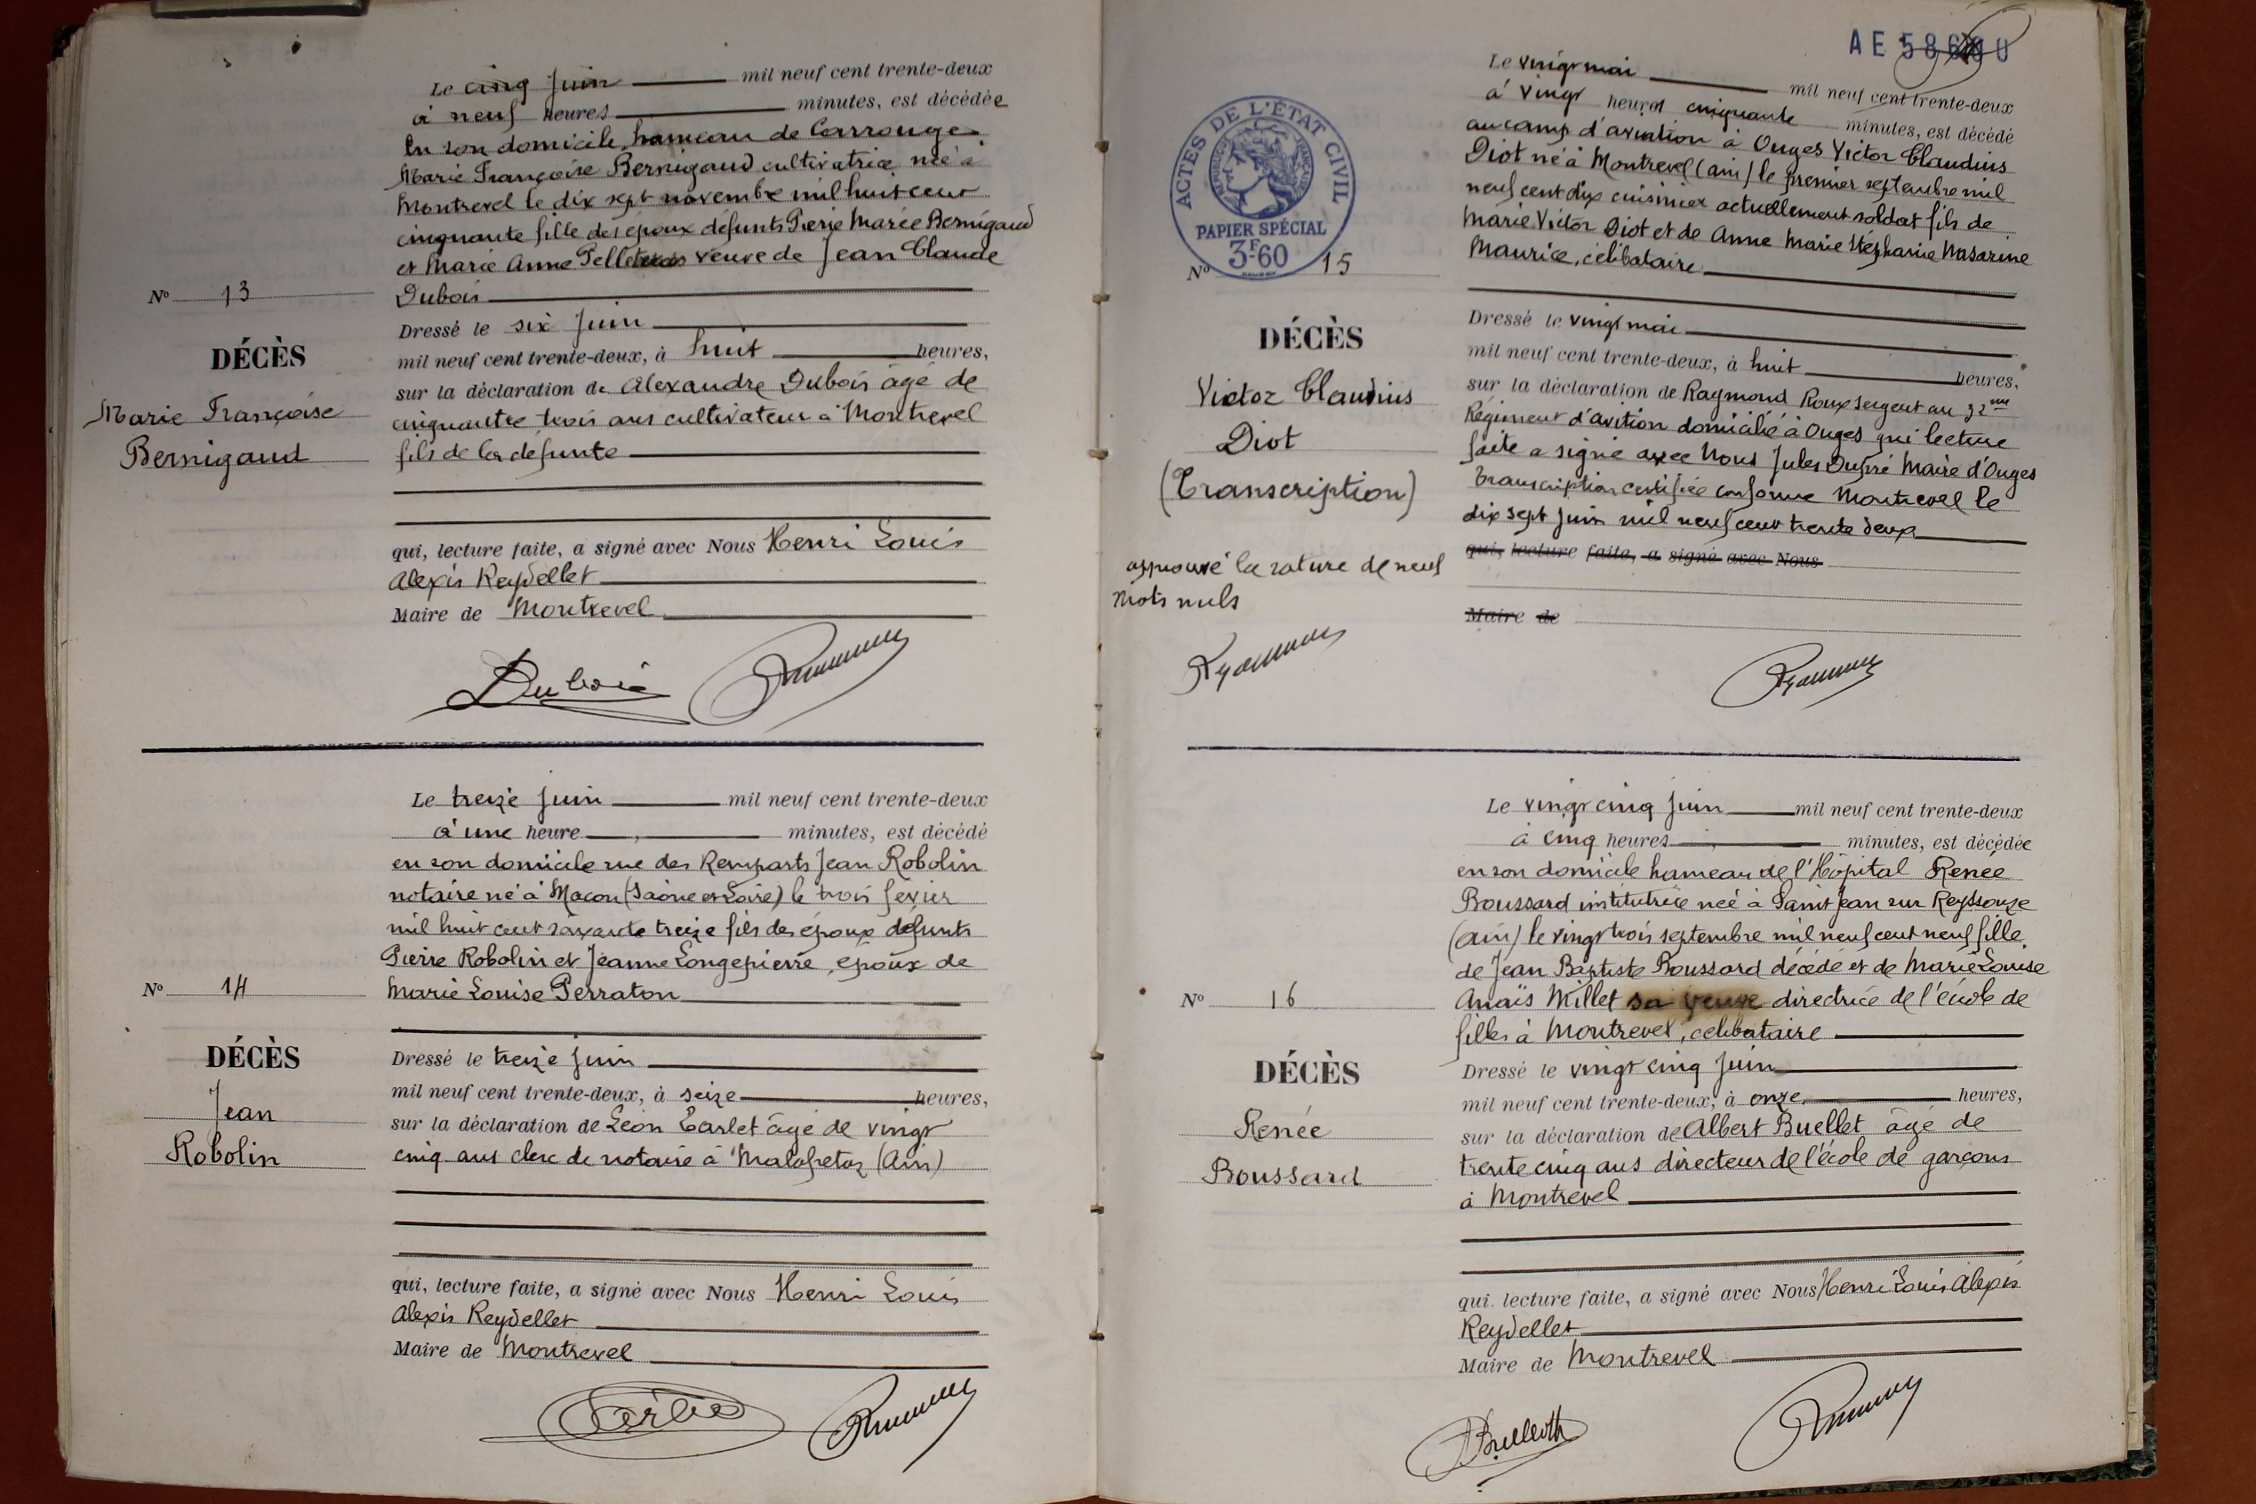 Le cinq juin mil neuf cent trente-deux
à neuf heures minutes, est décédée
en son domicile, hameau de Carrouge
Marie Françoise Bernigaud cultivatrice née à
Montrevel le dix sept novembre mil huit cent
cinquante fille des époux défunts Pierre Marie Bernigaud
et Marie Anne veuve de Jean Claude
Dubois
Nº 13
DÉCÈS
Marie Françoise
Bernigaud
Dressé le six juin
mil neuf cent trente-deux, à huit heures,
sur la déclaration de Alexandre Dubois âgé de
cinquante trois ans cultivateur à Montrevel
fils de la défunte
qui, lecture faite, a signé avec Nous Henri Louis
Alexis Reydellet
Maire de Montrevel
Dubois
Le treize juin mil neuf cent trente-deux
à une heure minutes, est décédé
en son domicile rue des Remparts Jean Robolin
notaire né à Macon (Saône et Loire) le trois fevier
mil huit cent soixante treize fils des époux défunts
Pierre Robolin et Jeanne Longepierre, époux de
Marie Louise Perraton
Nº 14
DÉCÈS
Jean
Robolin
Dressé le treize juin
mil neuf cent trente-deux, à seize heures,
sur la déclaration de Léon Carlet âgé de vingt
cinq ans clerc de notaire à Malafretaz (Ain)
qui, lecture faite, a signé avec Nous Henri Louis
Alexis Reydellet
Maire de Montrevel
AE
ACTES DE L'ÉTAT CIVIL
RÉPUBLIQUE FRANÇAISE
PAPIER SPÉCIAL
3F60
Le vingt mai mil neuf cent trente-deux
à vingt heures cinquante minutes, est décédé
au camp d'aviation à Ouges Victor Claudius
Diot né à Montrevel (ain) le premier septembre mil
neuf cent dix cuisinier actuellement soldat fils de
Marie Victor Diot et de Anne Marie Stéphanie Nasarine
Maurice, célibataire
Nº 15
DÉCÈS
Victor Claudius
Diot
(Transcription)
approuvé la rature de neuf
mots nuls
Dressé le vingt mai
mil neuf cent trente-deux, à huit heures,
sur la déclaration de Raymond Roux sergent au 32me
Régiment d'avition domicilié à Ouges qui lecture
faite a signé avec Nous Jules Dupré Maire d'Ouges
Transcription certifiée conforme Montrevel le
dix sept juin mil neuf cent trente deux
qui, lecture faite, a signé avec Nous
Maire de
Le vingt cinq juin mil neuf cent trente-deux
à cinq heures minutes, est décédée
en son domicile hameau de l'Hôpital Renée
Boussard institutrice née à Saint Jean sur Reyssouze
(ain) le vingt trois septembre mil neuf cent neuf fille
de Jean Baptiste Boussard décédé et de Marie Louise
Anaïs Millet sa veuve directrice de l'école de
filles à Montrevel, celibataire
Nº 16
DÉCÈS
Renée
Boussard
Dressé le vingt cinq juin
mil neuf cent trente-deux, à onze heures,
sur la déclaration de Albert Buellet âgé de
trente cinq ans directeur de l'école de garçons
à Montrevel
qui, lecture faite, a signé avec Nous Henri Louis Alexis
Reydellet
Maire de Montrevel